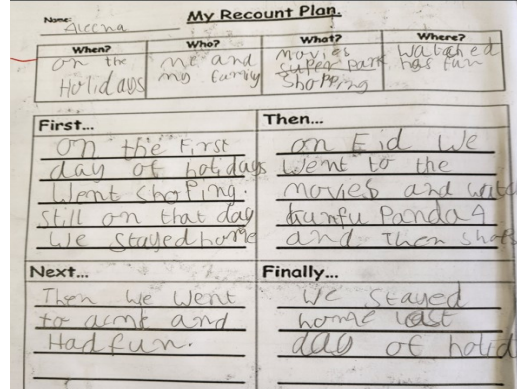 My Recount Plan.
Name: Aleena
When?
on the
Holidays
Who?
me and
my family
What?
Movies
super park
shopping
Where?
watched
has fun
First...
on the First
day of holidays
Went shoping.
still on that day
we stayed home
Then...
on Eid we
went to the
movies and
kunfu Panda 4
and then shops
Next...
Then we went
to acmt and
Had fun.
Finally...
We stayed
home last
day of holid